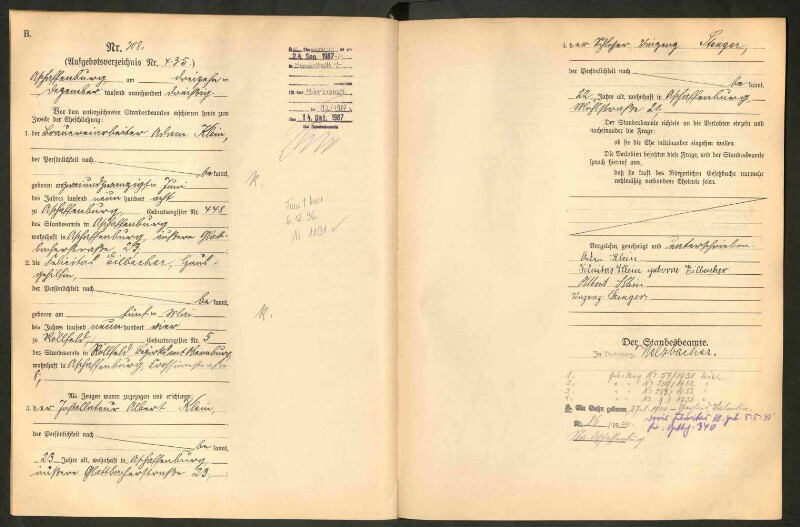 B.
Nr. 308.
(Aufgebotsverzeichnis Nr. 435.)
Aschaffenburg am dreizehn-
Dezember tausend neunhundert dreißig.
Vor dem unterzeichneten Standesbeamten erschienen heute zum
Zwecke der Eheschließung:
1. der Brauereiarbeiter Adam Klein,
der Persönlichkeit nach
be kannt,
geboren am zweiundzwanzigst- Juni
des Jahres tausend neunhundert acht
zu Aschaffenburg, Geburtsregister Nr. 448
des Standesamts in Aschaffenburg
wohnhaft in Aschaffenburg, äußere Glatt-
bacherstraße 23,
2. die Felicitas Eilbacher, Haus-
gehilfin,
der Persönlichkeit nach
be kannt,
geboren am fünft- Mai
des Jahres tausend neunhundert vier
zu Röllfeld, Geburtsregister Nr. 5
des Standesamts in Röllfeld Bezirksamt Obernburg,
wohnhaft in Aschaffenburg,
8;
Als Zeugen waren zugezogen und erschienen:
3. der Installateur Albert Klein,
der Persönlichkeit nach
be kannt,
23 Jahre alt, wohnhaft in Aschaffenburg
äußere Glattbacherstraße 23,
24. Sep. 1987
14. Okt. 1987
K.
6.12.96.
Nr. 1191
K.
4. der Schlosser Vinzenz Stenger,
der Persönlichkeit nach
be kannt,
22 Jahre alt, wohnhaft in Aschaffenburg
Mühlstraße 21,
Der Standesbeamte richtete an die Verlobten einzeln und
nacheinander die Frage:
ob sie die Ehe miteinander eingehen wollen.
Die Verlobten bejahten diese Frage, und der Standesbeamte
sprach hierauf aus,
daß sie kraft des Bürgerlichen Gesetzbuchs nunmehr
rechtmäßig verbundene Eheleute seien.
Vorgelesen, genehmigt und unterschrieben
Adam Klein
Felicitas Klein geborne Eilbacher
Albert Klein
Vinzenz Stenger
Der Standesbeamte.
In Vertretung: Welzbacher.
1.
2.
3.
4.
Ein Sohn geboren
Nr.
Aschaffenburg
340